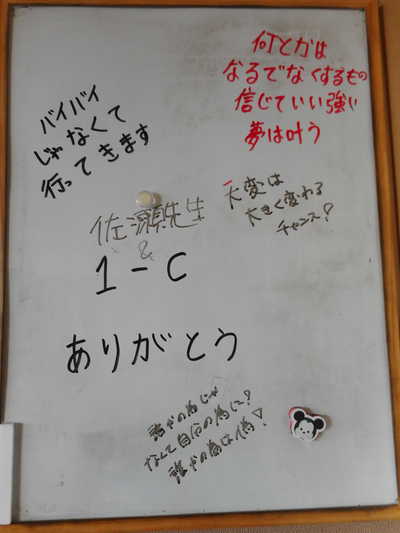 何とかは
なるでなくするもの
信じていい強い
夢は叶う
バイバイ
じゃなくて
行ってきます
大変は
大きく変わる
チャンス?
佐瀬先生
&
1-C
ありがとう
誰かの為じゃ
なくて自分の為に?
誰かの為は偽▽